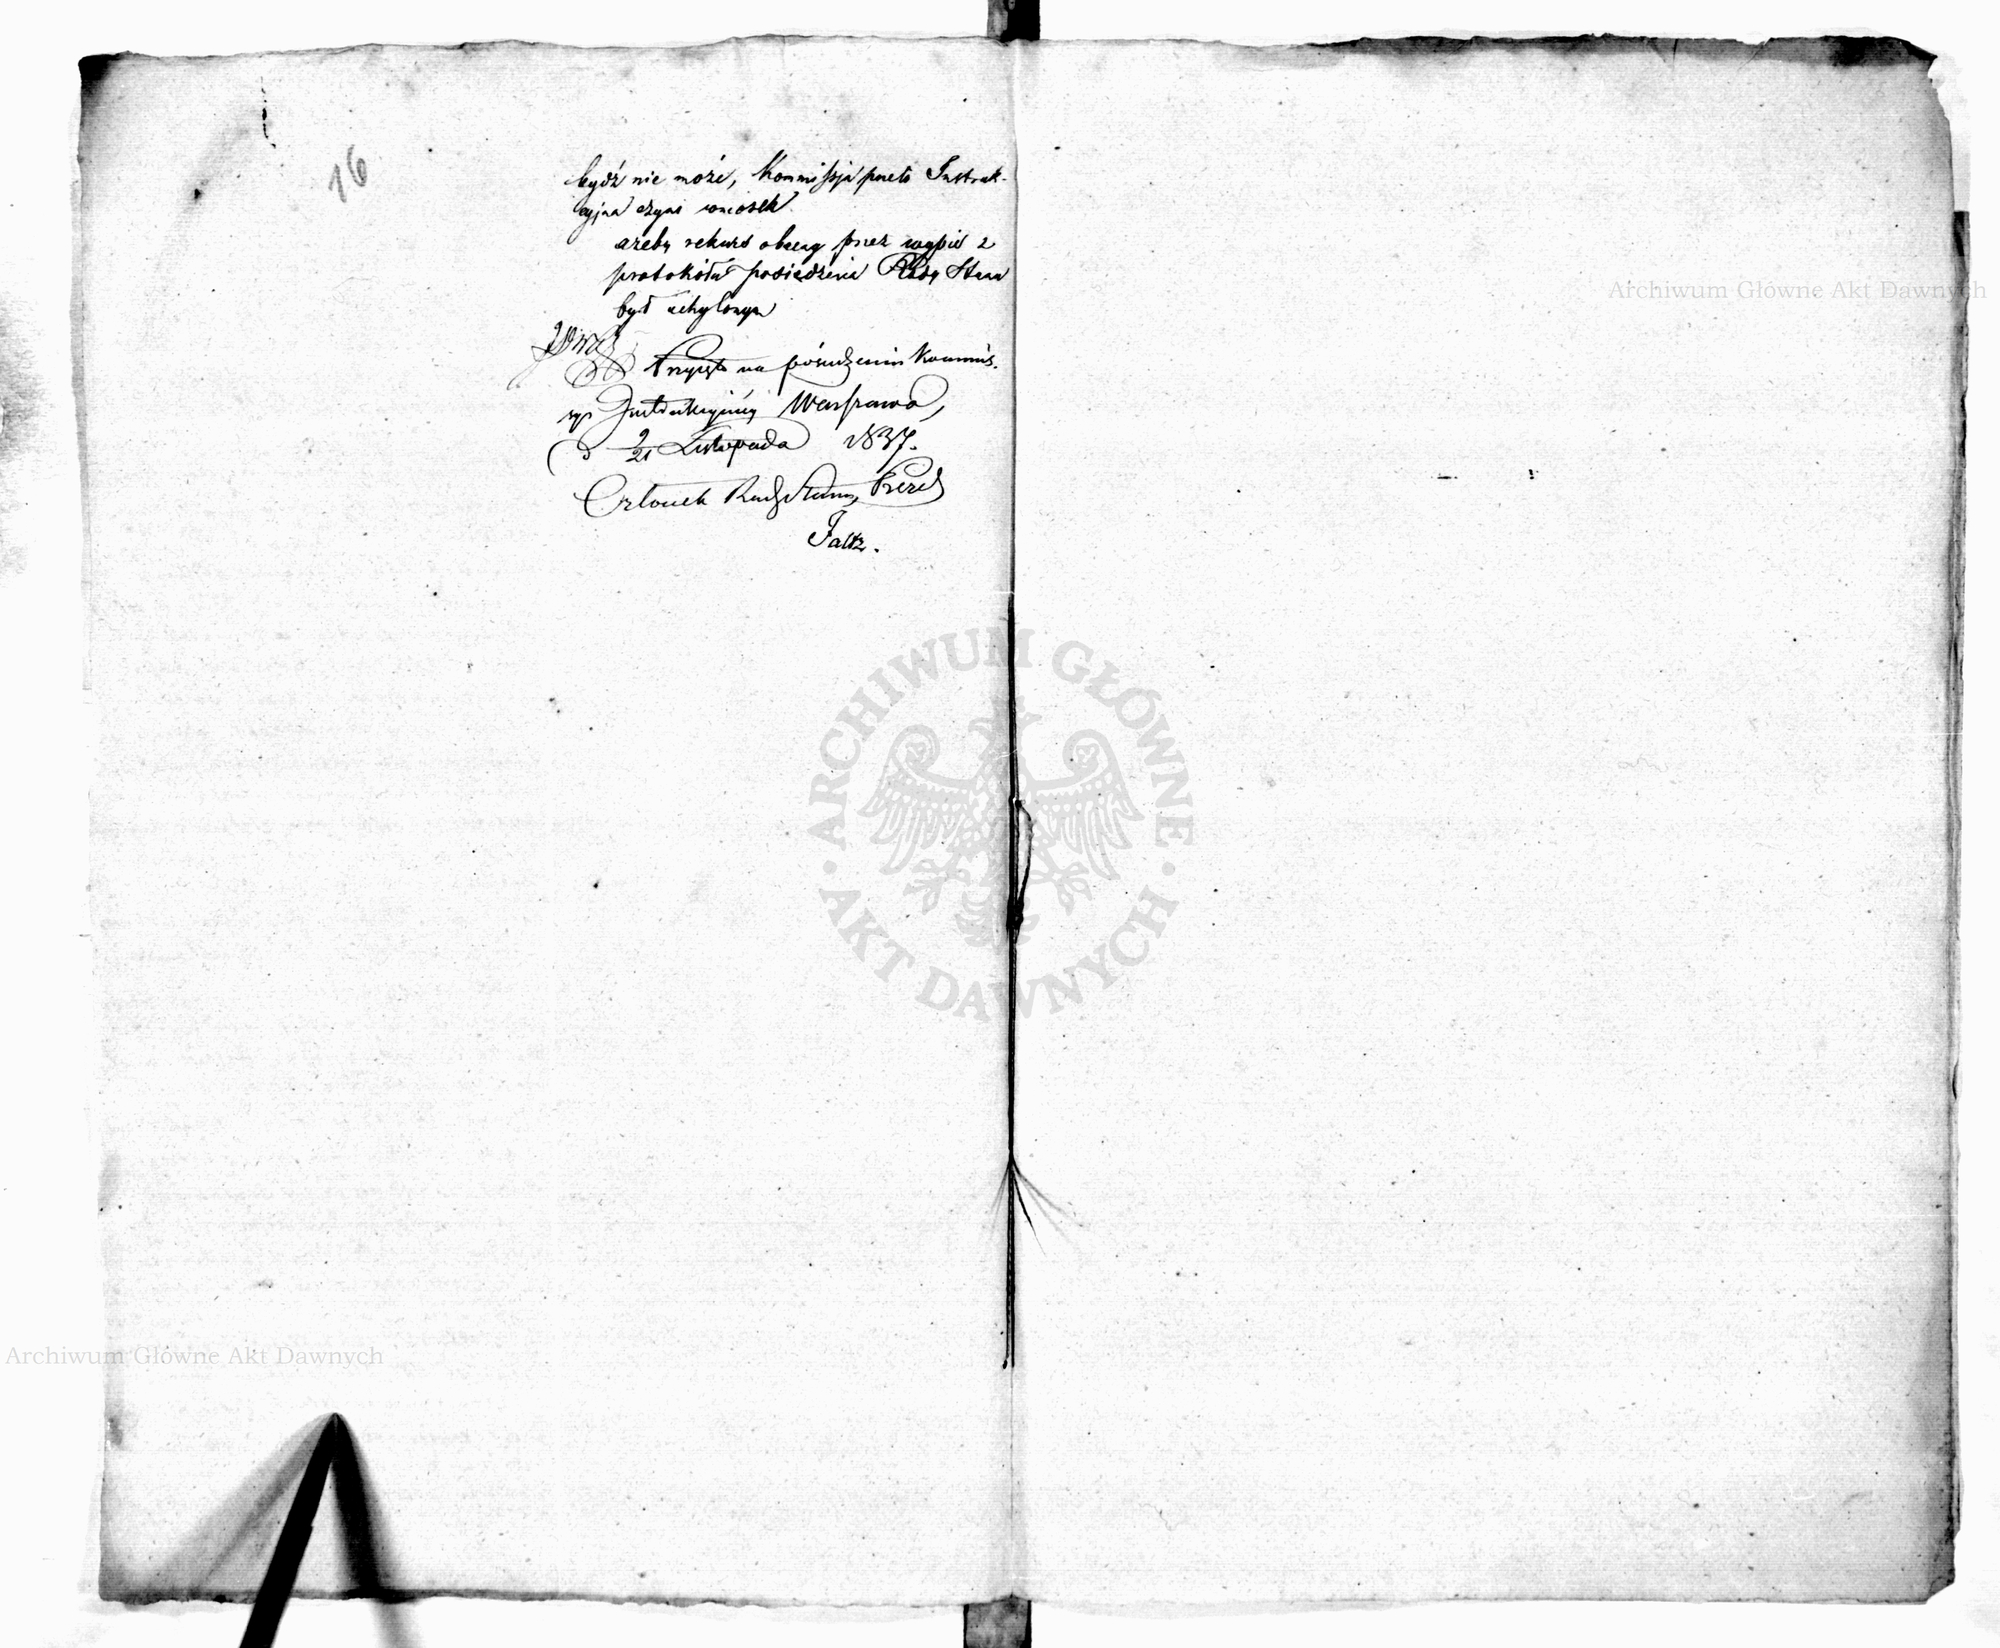 16
bydź nie może, Kommissja przeto Instruk-
cyjna czyni wniosek
ażeby rekurs obecny przez wypis z
protokółu posiedzenia Rady Stanu
był uchylonym
Przyięto na posiedzeniu Kommis-
syi Instrukcyinéy Warszawa,
d 9/21 Listopada 1837.
Członek Rady Stanu, Prezes
Faltz.
Archiwum Główne Akt Dawnych
ARCHIWUM GŁÓWNE · AKT DAWNYCH ·
Archiwum Główne Akt Dawnych